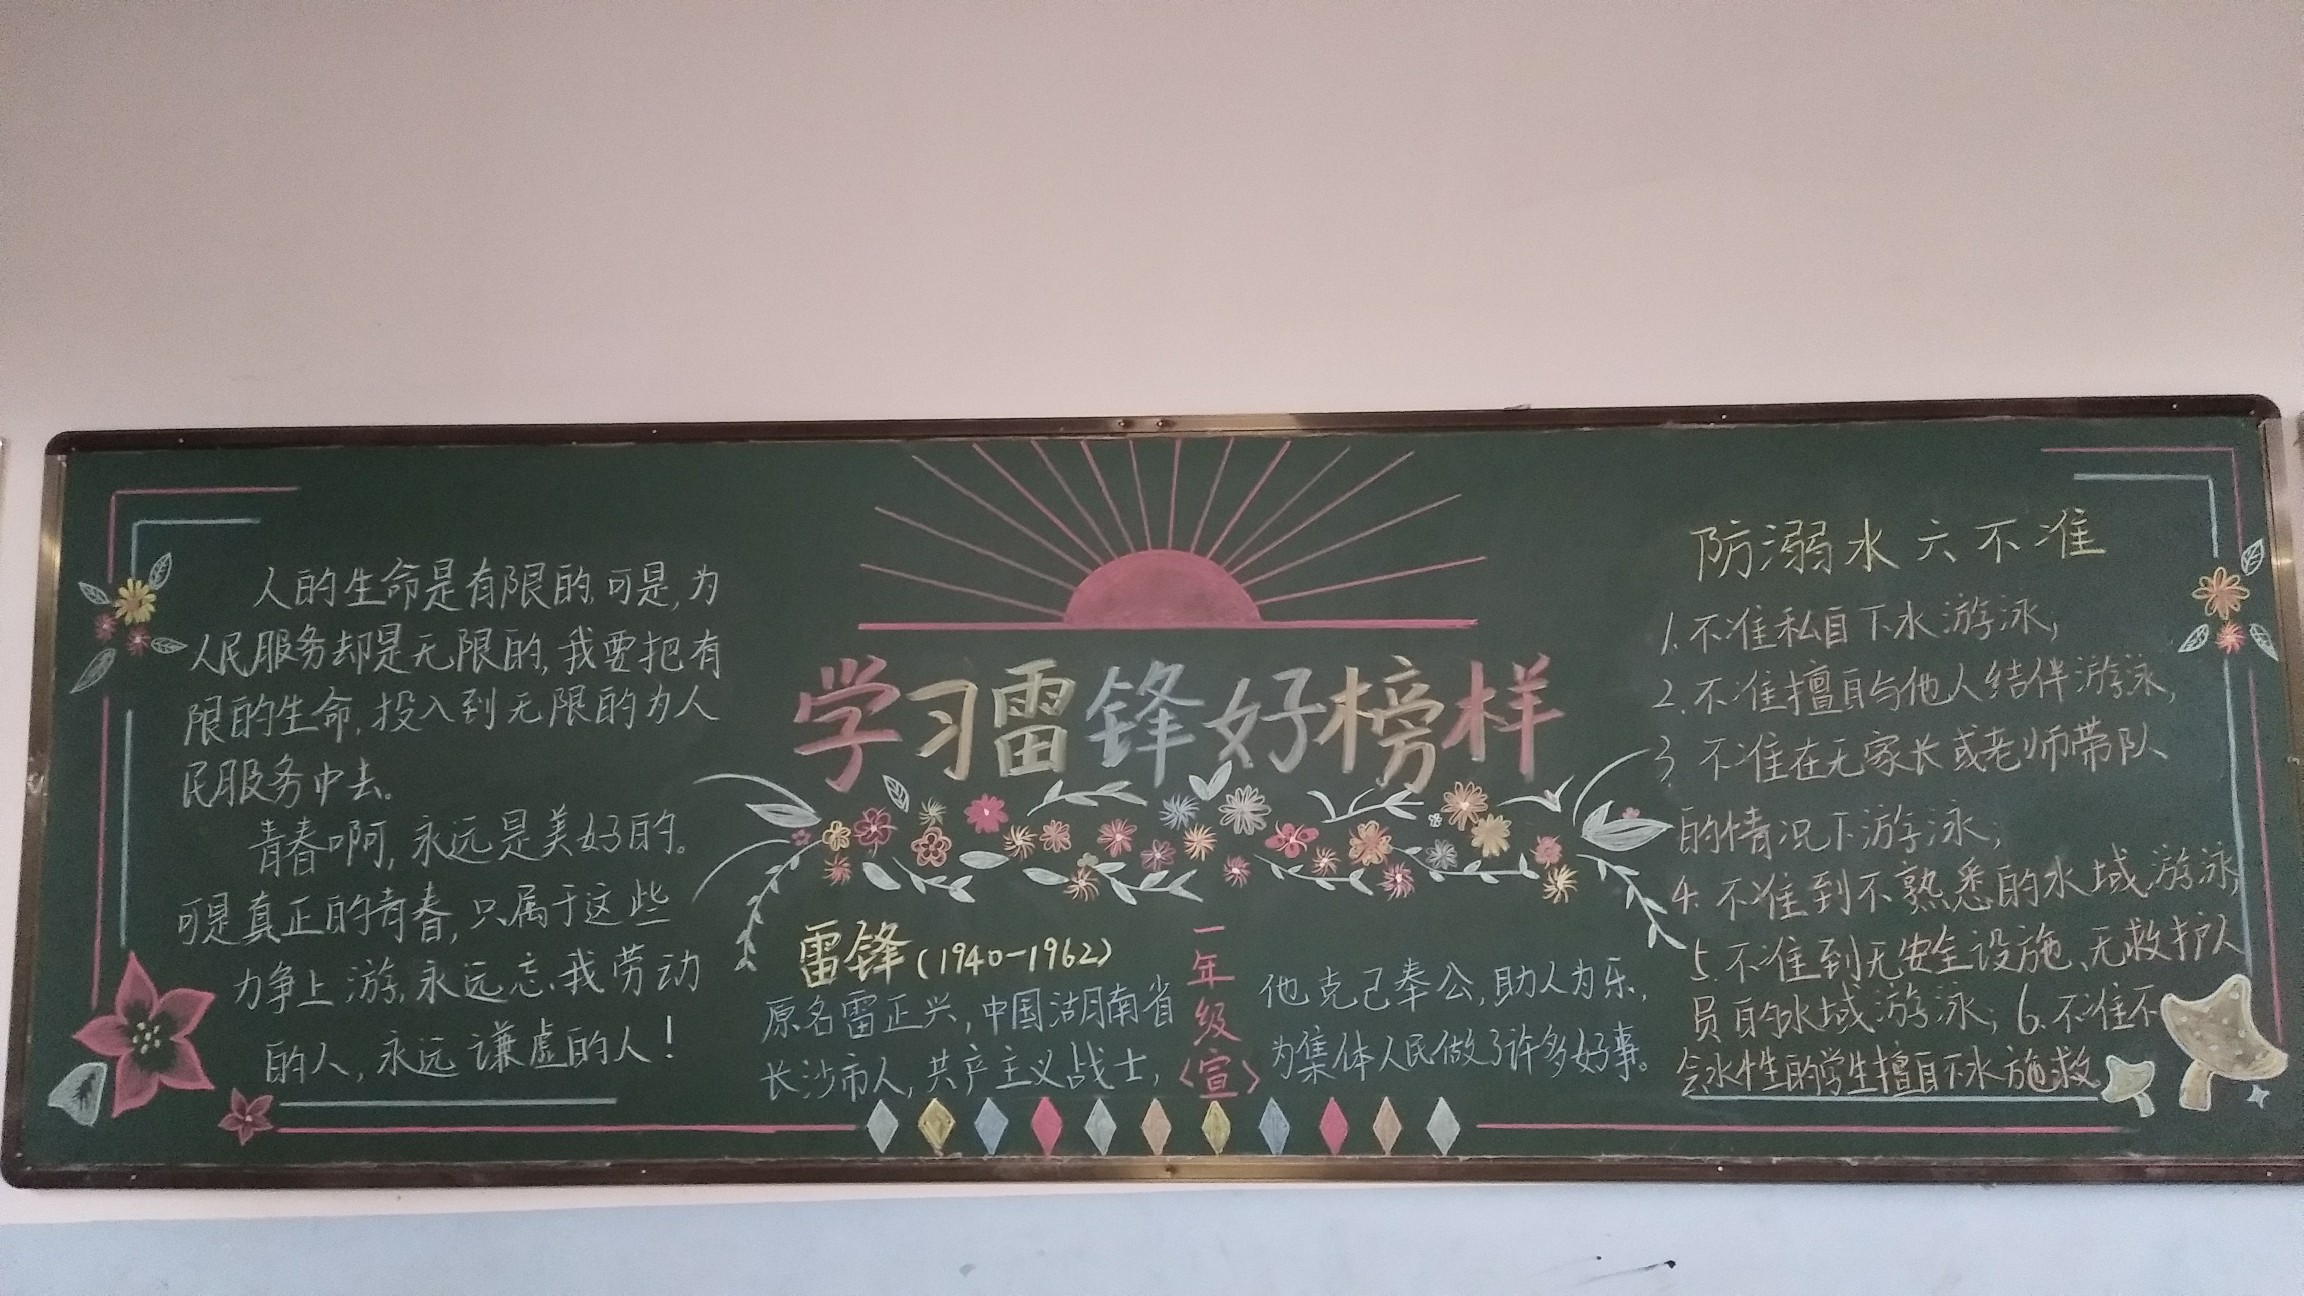 人的生命是有限的,可是,为
人民服务却是无限的,我要把有
限的生命,投入到无限的为人
民服务中去。
青春啊,永远是美好的。
可是真正的青春,只属于这些
力争上游,永远忘我劳动
的人,永远谦虚的人!
学习雷锋好榜样
雷锋(1940-1962)
原名雷正兴,中国湖南省
长沙市人,共产主义战士,
一年级〈宣〉
他克己奉公,助人为乐,
为集体人民做了许多好事。
防溺水六不准
1.不准私自下水游泳;
2.不准擅自与他人结伴游泳,
3.不准在无家长或老师带队
的情况下游泳;
4.不准到不熟悉的水域游泳,
5.不准到无安全设施、无救护人
员的水域游泳;6.不准不
会水性的学生擅自下水施救